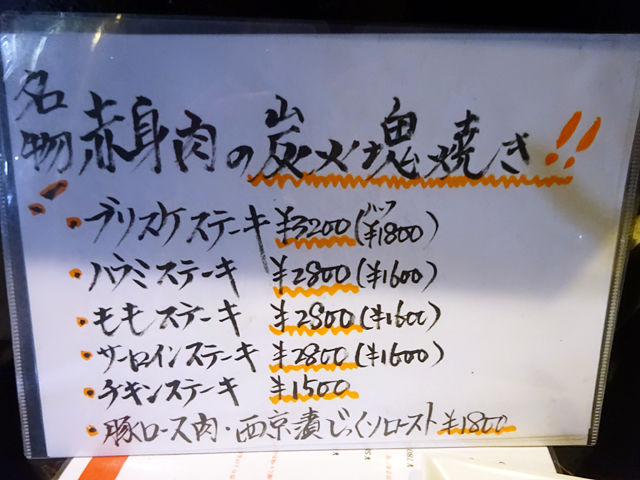 名物 赤身肉の炭火塊焼き!!
・ブリスケステーキ ¥3200(ハーフ ¥1800)
・ハラミステーキ ¥2800(¥1600)
・ももステーキ ¥2800(¥1600)
・サーロインステーキ ¥2800(¥1600)
・チキンステーキ ¥1500
・豚ロース肉・西京漬じっくりロースト ¥1800